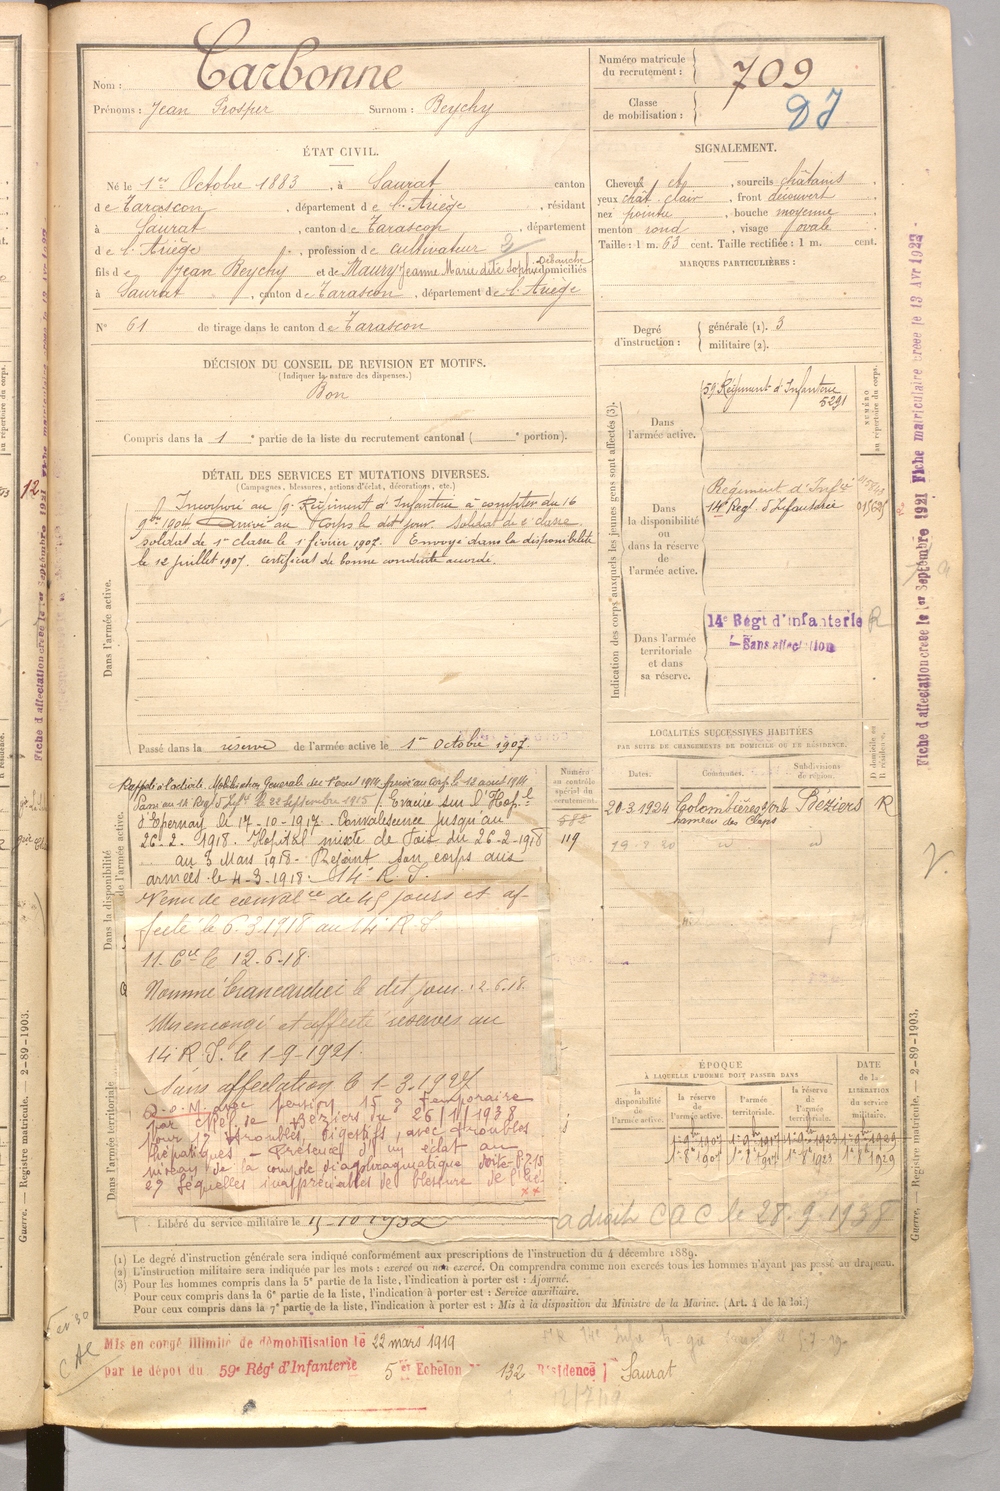 Nom : Carbonne
Prénoms : Jean Prosper Surnom : Beychy
Numéro matricule du recrutement : 709
Classe de mobilisation :
ÉTAT CIVIL.
Né le 1er Octobre 1883, à Saurat canton
de Tarascon, département de l'Ariège, résidant
à Saurat, canton de Tarascon, département
de l'Ariège, profession de cultivateur
fils de Jean Beychy et de Maury Jeanne Marie dite Sophie domiciliés
à Saurat, canton de Tarascon, département de l'Ariège
N° 61 de tirage dans le canton de Tarascon
SIGNALEMENT.
Cheveux et, sourcils châtains
yeux chât. clair, front découvert
nez pointu, bouche moyenne
menton rond, visage ovale
Taille : 1 m. 63 cent. Taille rectifiée : 1 m. cent.
MARQUES PARTICULIÈRES :
Degré d'instruction : générale (1). 3
militaire (2).
DÉCISION DU CONSEIL DE REVISION ET MOTIFS.
(Indiquer la nature des dispenses.)
Bon
Compris dans la 1e partie de la liste du recrutement cantonal ( e portion).
DÉTAIL DES SERVICES ET MUTATIONS DIVERSES.
(Campagnes, blessures, actions d'éclat, décorations, etc.)
Dans l'armée active.
Incorporé au 59e Régiment d'Infanterie à compter du 16
9bre 1904. Arrivé au Corps le dit jour. Soldat de 2e classe.
soldat de 1re classe le 1er février 1907. Envoyé dans la disponibilité
le 12 juillet 1907. Certificat de bonne conduite accordé.
Passé dans la réserve de l'armée active le 1er Octobre 1907.
Indication des corps auxquels les jeunes gens sont affectés (3).
NUMÉRO au répertoire du corps.
Dans l'armée active.
59e Régiment d'Infanterie
5291
Dans la disponibilité ou dans la réserve de l'armée active.
Régiment d'Infie
14e Régt d'Infanterie
Dans l'armée territoriale et dans sa réserve.
14e Régt d'Infanterie R
Sans affectation
Fiche d'affectation créée le 1er Septembre 1921 Fiche matriculaire créée le 13 Avr 1922
LOCALITÉS SUCCESSIVES HABITÉES
PAR SUITE DE CHANGEMENTS DE DOMICILE OU DE RÉSIDENCE.
Dates. Communes. Subdivisions de région. D domicile ou R résidence.
20.3.1924 Colombières s/orb Béziers R
hameau des Caps
Dans la disponibilité
de l'armée active.
Numéro au contrôle spécial du recrutement.
119
Rappelé à l'activité. Mobilisation Générale du 1er août 1914. Arrivé au Corps le 12 août 1914
Passé au 14 Regt d'Infie le 22 Septembre 1915. Evacué sur l'Hopl
d'Epernay le 17-10-1917. Convalescence jusqu'au
26.2.1918. Hopital mixte de Foix du 26-2-1918
au 3 Mars 1918. Rejoint son corps aux
armées le 4-3-1918. 14e R.I.
Venu de convalce de 45 jours et af-
fecté le 6.3.1918 au 14e R.I.
11e Cie le 12.6.18.
Nommé brancardier le dit jour. 12.6.18.
Mis en congé et affecté réserves au
14e R.I. le 1-9-1921.
Sans affectation le 1-3.1927
Dans l'armée territoriale
par de Béziers du 26/1/1938
pour 1° Troubles digestifs, avec troubles
hépatiques - Présence d'un éclat au
niveau de la coupole diaphragmatique droite
2° Séquelles inappréciables de blessure
Libéré du service militaire le
ÉPOQUE
À LAQUELLE L'HOMME DOIT PASSER DANS
la disponibilité de l'armée active. la réserve de l'armée active. l'armée territoriale. la réserve de l'armée territoriale.
DATE de la LIBÉRATION du service militaire.
a droit C A C le 28.9.1938
(1) Le degré d'instruction générale sera indiqué conformément aux prescriptions de l'instruction du 4 décembre 1889.
(2) L'instruction militaire sera indiquée par les mots : exercé ou non exercé. On comprendra comme non exercés tous les hommes n'ayant pas passé au drapeau.
(3) Pour les hommes compris dans la 5e partie de la liste, l'indication à porter est : Ajourné.
Pour ceux compris dans la 6e partie de la liste, l'indication à porter est : Service auxiliaire.
Pour ceux compris dans la 7e partie de la liste, l'indication à porter est : Mis à la disposition du Ministre de la Marine. (Art. 4 de la loi.)
Guerre. — Registre matricule. — 2-89-1903.
CAC
Mis en congé illimité de démobilisation le 22 mars 1919
par le dépôt du 59e Régt d'Infanterie 5e Echelon N° 132 Résidence Saurat